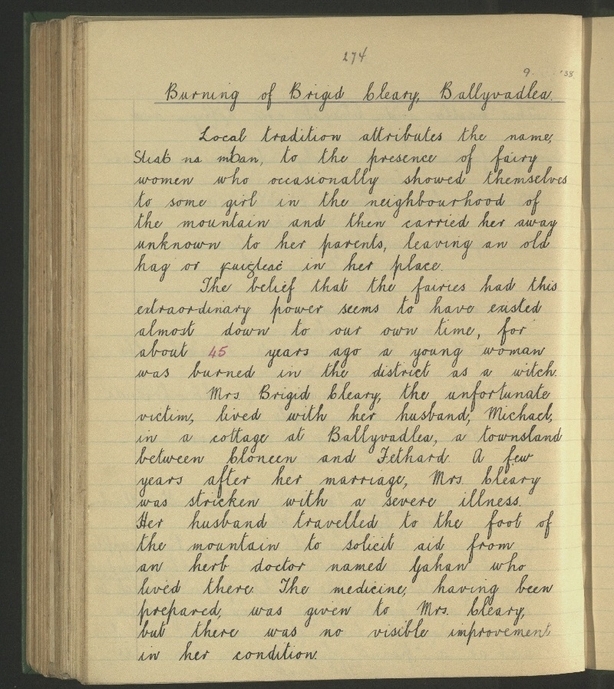 274
9. '38
Burning of Brigid Cleary, Ballyvadlea.
Local tradition attributes the name,
Sliaḃ na mBan, to the presence of fairy
women who occasionally showed themselves
to some girl in the neighbourhood of
the mountain and then carried her away
unknown to her parents, leaving an old
hag or in her place.
The belief that the fairies had this
extraordinary power seems to have existed
almost down to our own time, for
about 45 years ago a young woman
was burned in the district as a witch.
Mrs Brigid Cleary, the unfortunate
victim, lived with her husband, Michael,
in a cottage at Ballyvadlea, a townsland
between Cloneen and Fethard. A few
years after her marriage, Mrs. Cleary
was stricken with a severe illness.
Her husband travelled to the foot of
the mountain to solicit aid from
an herb doctor named Gahan who
lived there. The medicine, having been
prepared, was given to Mrs. Cleary,
but there was no visible improvement
in her condition.